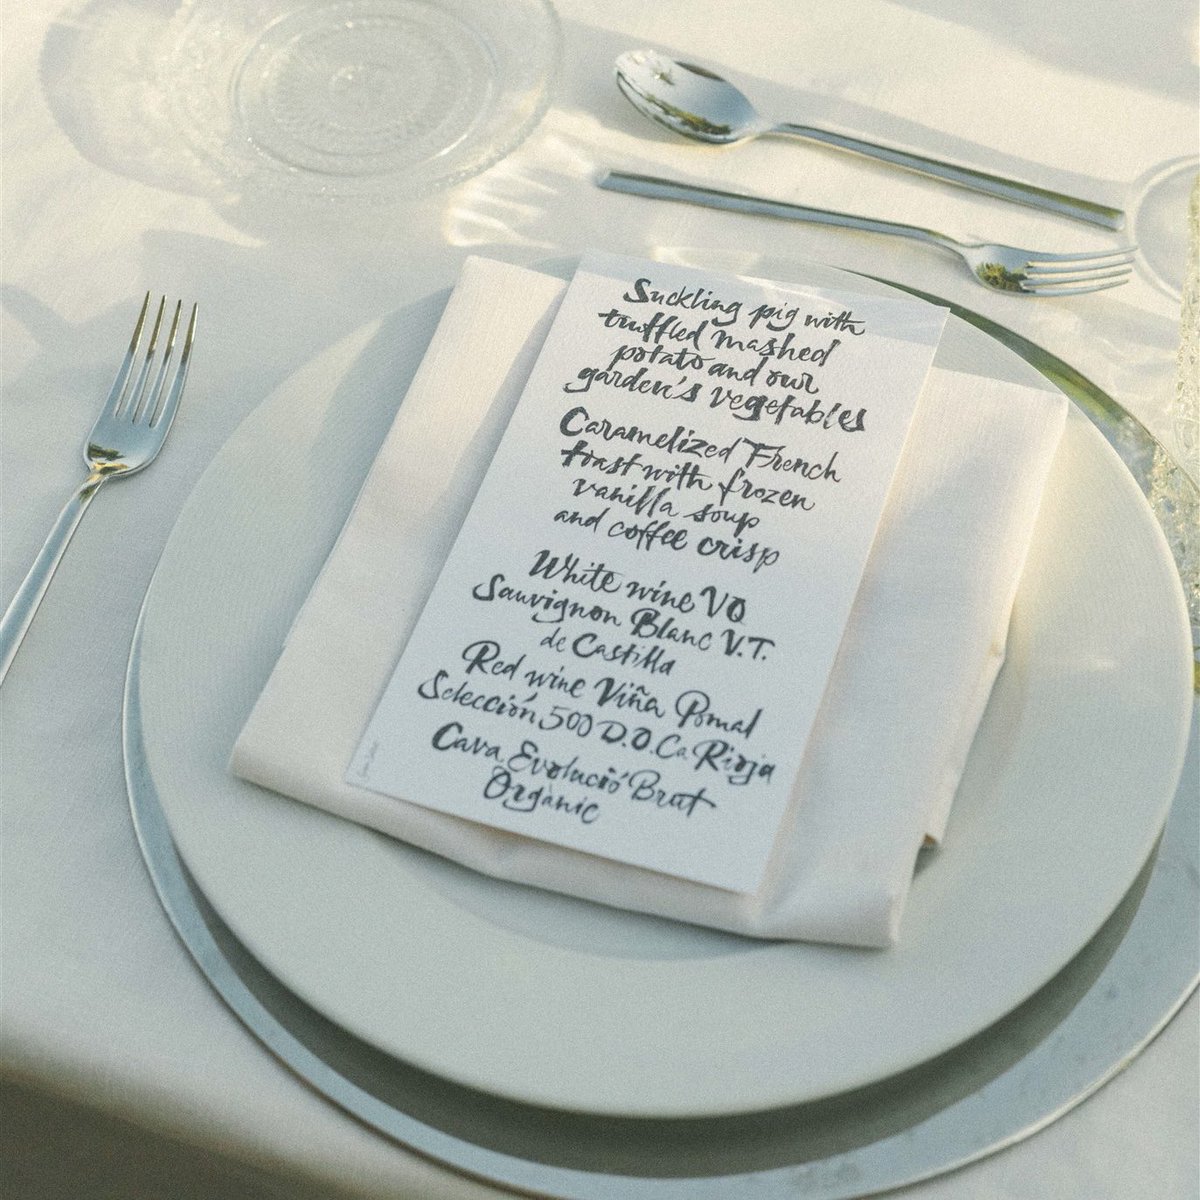 Suckling pig with
truffled mashed
potato and our
garden's vegetables
Caramelized French
toast with frozen
vanilla soup
and coffee crisp
White wine VO
Sauvignon Blanc V.T.
de Castilla
Red wine Viña Pomal
Selección 500 D.O.Ca Rioja
Cava Evolució Brut
Orgànic